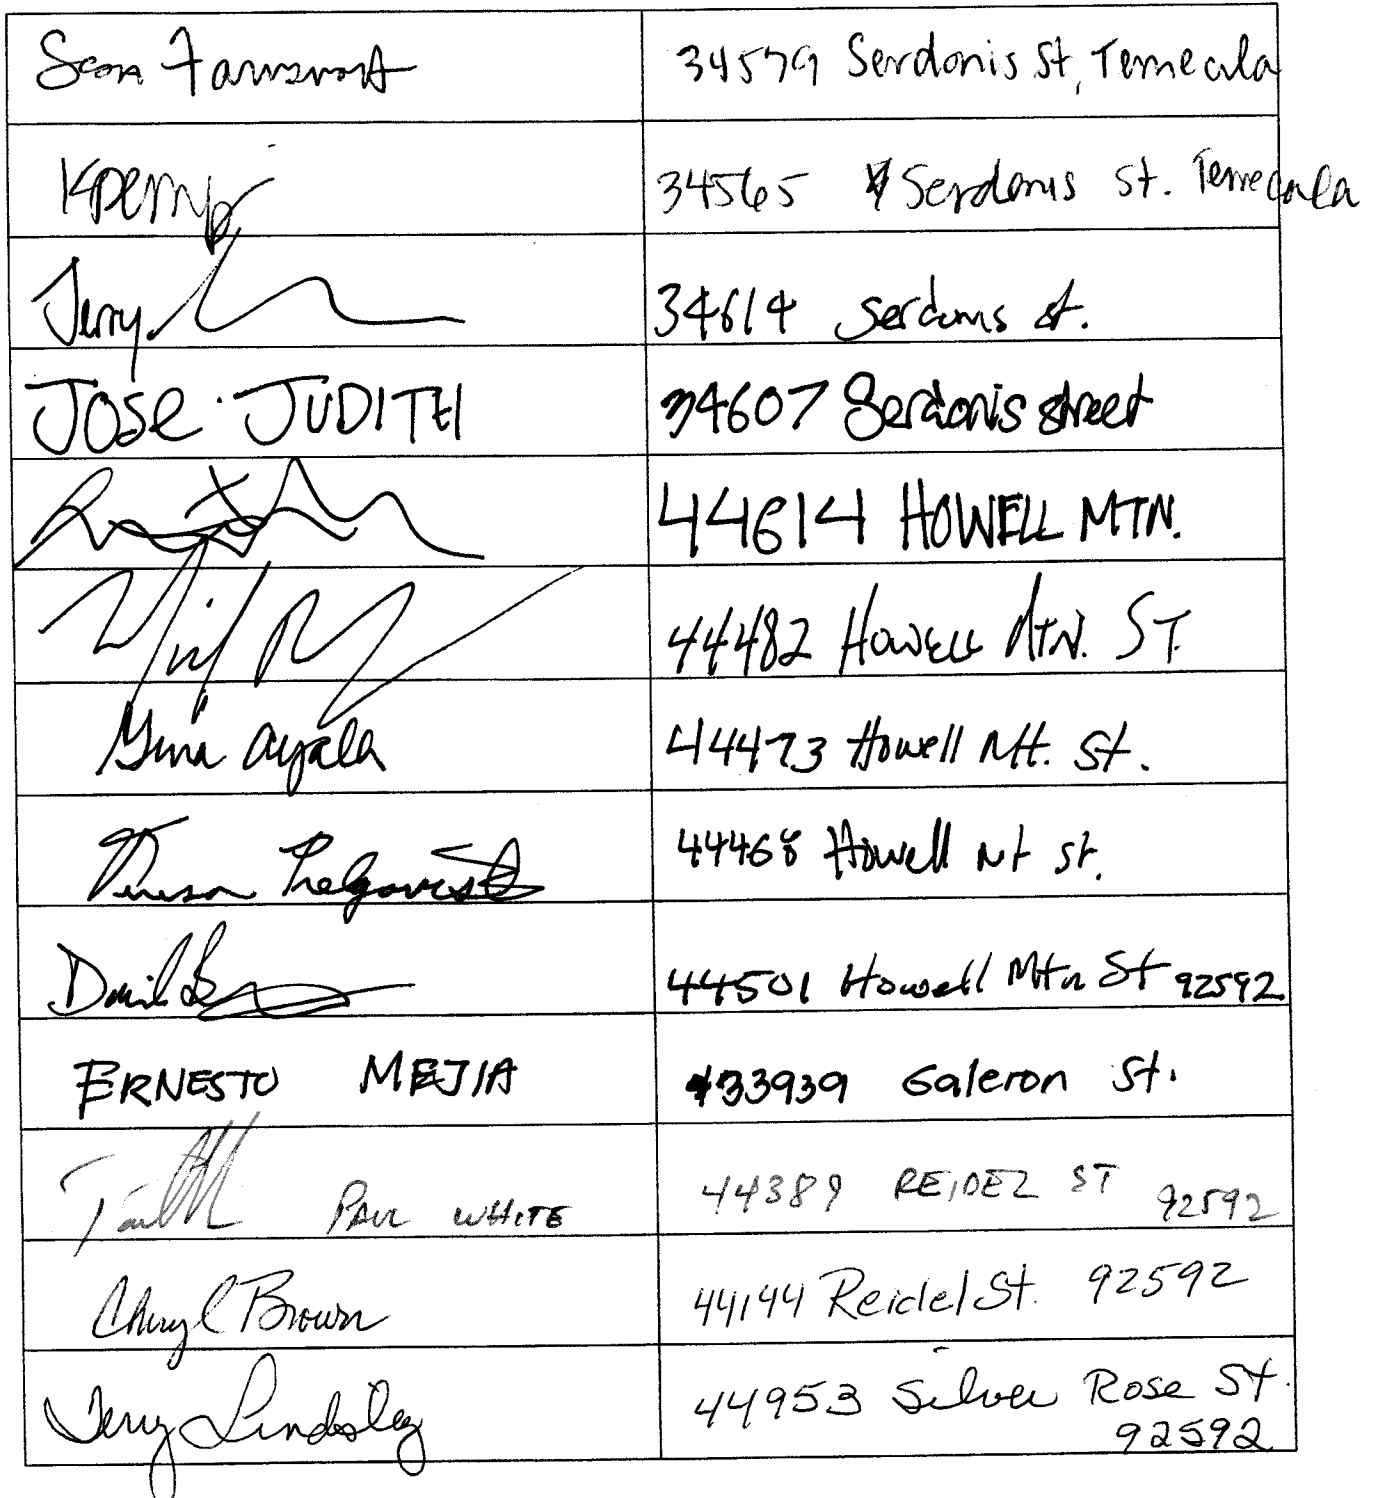 34579 Serdonis St, Temecula
34565 Serdonis St. Temecula
Jerry 34614 Serdonis st.
JOSE. JUDITH 34607 Serdonis street
44614 HOWELL MTN.
44482 HOWELL MTN. ST.
Gina Ayala 44473 Howell Mt. St.
44468 Howell Mt st.
David 44501 Howell Mtn St 92592
ERNESTO MEJIA 33939 Galeron St.
PAUL WHITE 44389 REIDEL ST 92592
Cheryl Brown 44144 Reidel St. 92592
Terry Lindsley 44953 Silver Rose St.
92592